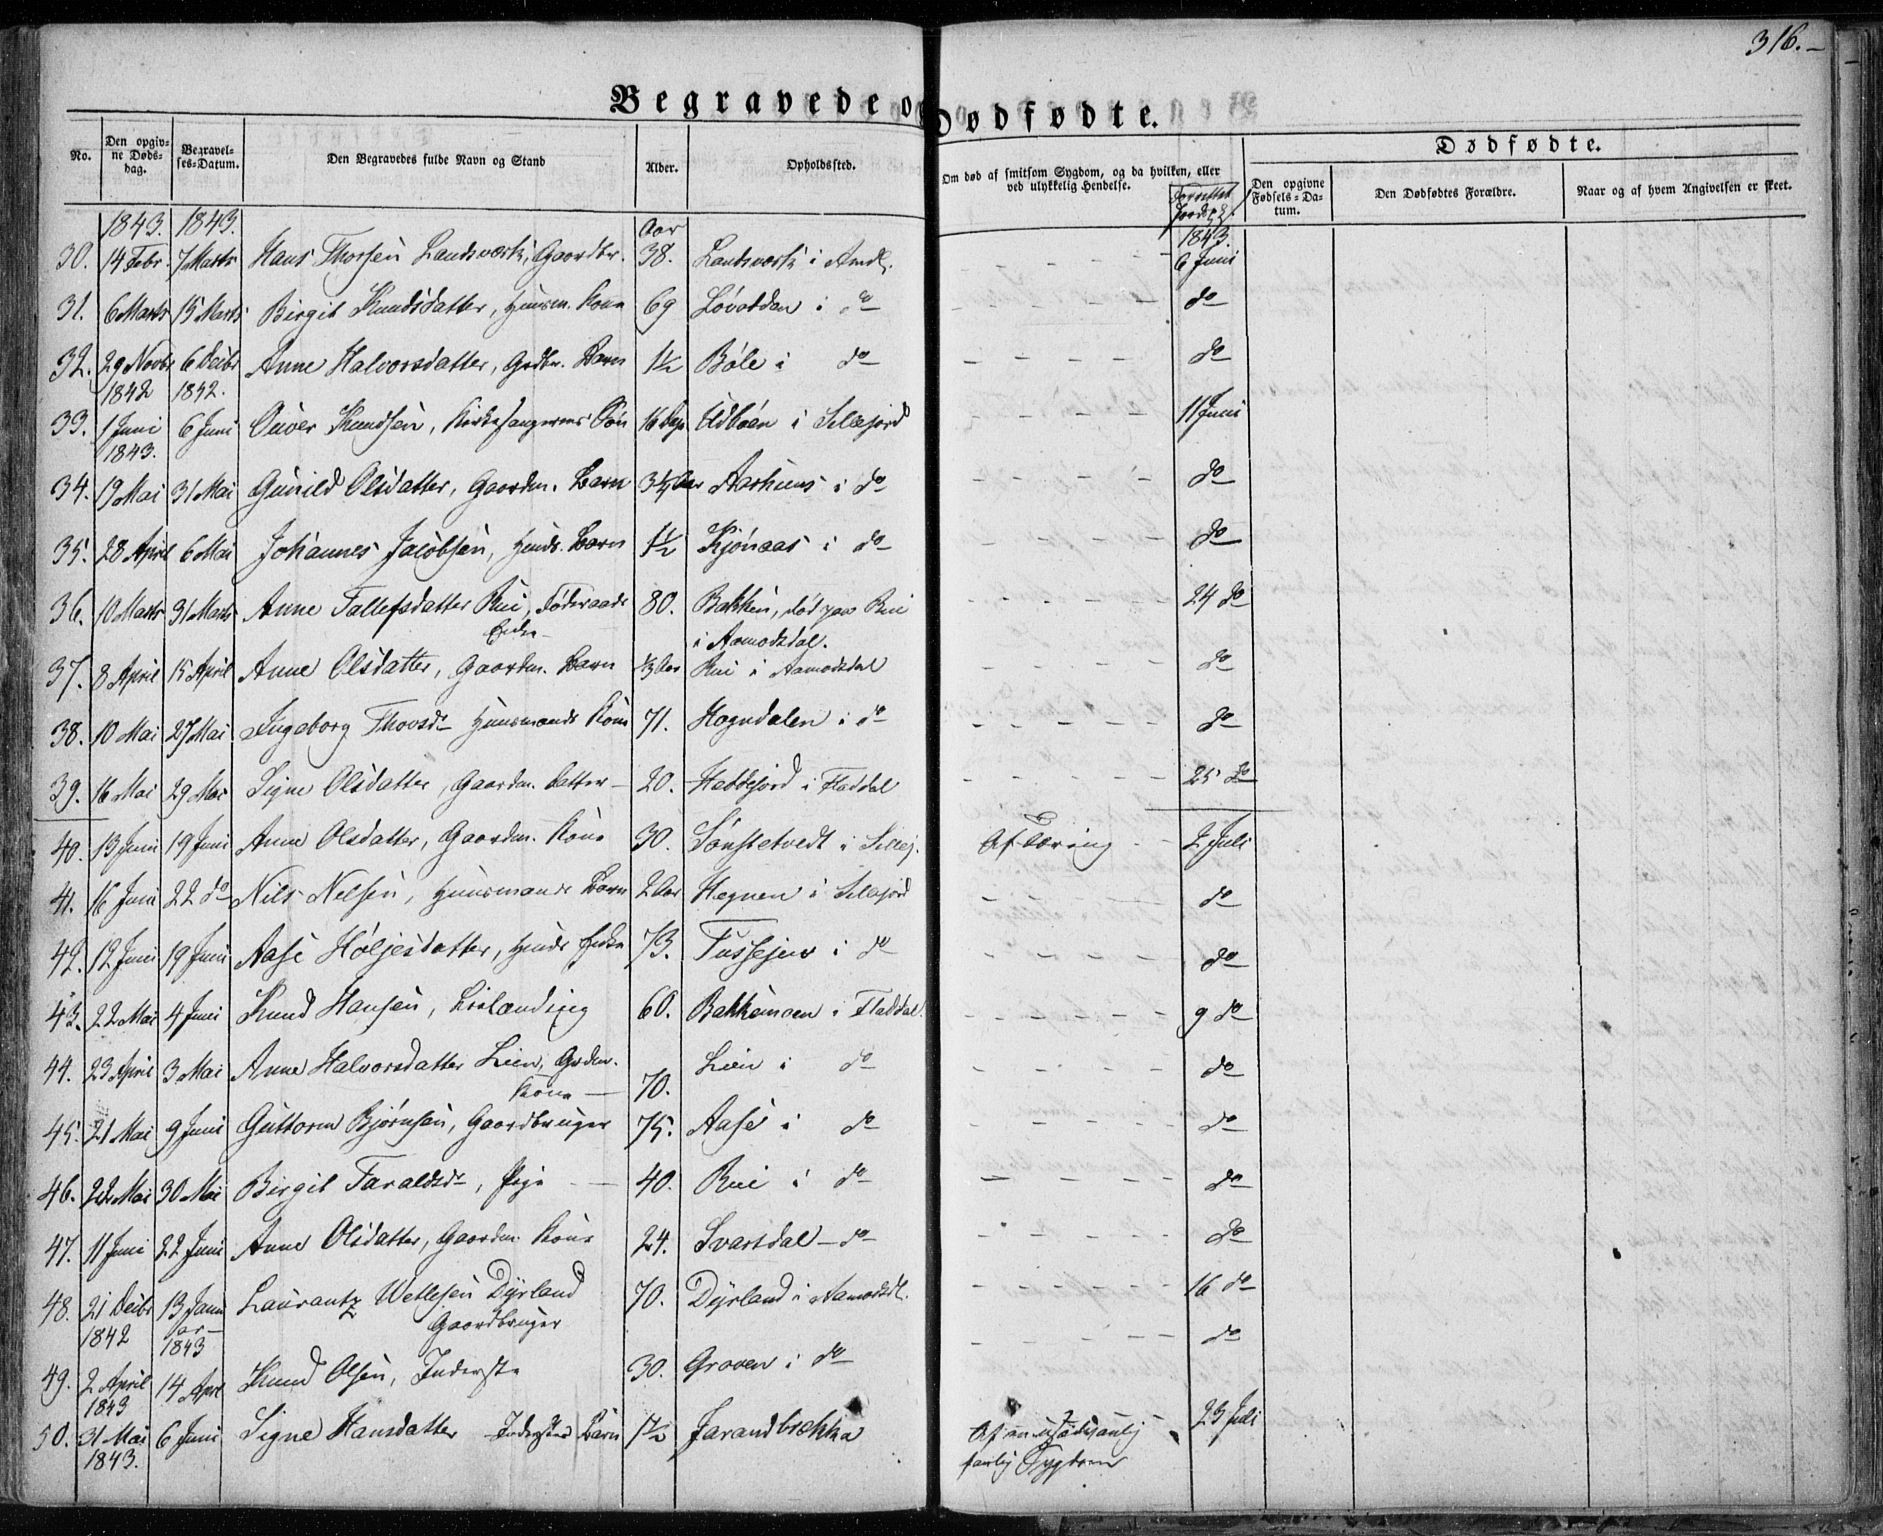 316.
Begravede o Dødfødte.
No.
Den opgivne Dødsdag.
Begravelses-Datum.
Den Begravedes fulde Navn og Stand
Alder.
Opholdssted.
Om død af smitsom Sygdom, og da hvilken, eller ved ulykkelig Hendelse.
Dødfødte.
Den opgivne Fødsels-Datum.
Den Dødfødtes Forældre.
Naar og af hvem Angivelsen er skeet.
1843. 1843. Aar 1843.
30. 14 Febr. 7 Marts Hans Thorsen Landsverk, Gaardbr. 38. Landsverk i Amdl. 6 Juni
31. 6 Marts 15 Marts Birgit Knudsdatter, Huusm. Kone 69 Løvodden i do do
32. 29 Novbr 1842 6 Decbr 1842. Anne Halvorsdatter, Grdbr. Barn 1½ Bøle i do do
33. 1 Juni 1843. 6 Juni Knudsen, Kirkesangerens Søn 16 Dage Udbøen i Sillejord 11 Juni
34. 19 Mai 31 Mai Gunild Olsdatter, Gaardm. Barn Aar Aarhuus i do do
35. 28 April 6 Mai Johannes Jacobsen, Huusm. Barn 1½ Kjønaas i do do
36. 10 Marts 31 Marts Anne Tallefsdatter Rui, Føderaads Enke 80. Bakken, død paa Rui i Aamodsdal. 24 do
37. 8 April 15 April Anne Olsdatter, Gaardm. Barn ⅓ Aar Rui i Aamodsdal do
38. 10 Mai 27 Mai Ingeborg Thovsdr Huusmands Kone 71. Hogndalen i do do
39. 16 Mai 29 Mai Signe Olsdatter, Gaardm. Datter 20. Haddejord i Fladdal 25 do
40. 13 Juni 19 Juni Anne Olsdatter, Gaardm. Kone 30. Sønstetvedt i Sillej. Af Tæring 2 Juli
41. 16 Juni 22 do Nils Nilsen, Huusmands Barn 2 Aar Hegnen i Sillejord do
42. 12 Juni 19 Juni Aase Høljesdatter, Huusm. Enke 73. i do do
43. 22 Mai 4 Juni Knud Hansen, 60. Bakkemoen i Fladdal 9 do
44. 23 April 3 Mai Anne Halvorsdatter Lien, Grdm. Kone 70. Lien i do do
45. 21 Mai 9 Juni Guttorm Bjørnsen, Gaardbruger 75. Aase i do do
46. 22 Mai 30 Mai Birgit Taraldsdr, Pige 40. Rui i do do
47. 11 Juni 22 Juni Anne Olsdatter, Gaardm. Kone 24. Svartdal do do
48. 21 Decbr 1842 13 Januar 1843 Laurantz Wetlesen Dyrland Gaardbruger 70. Dyrland i Aamodsdl. 16 do
49. 2 April 1843 14 Apr. Knud Olsen, Inderste 30. Groven i do do
50. 31 Mai 1843. 6 Juni Signe Hansdatter Inderstes Barn 1½ Jarandbrekka Af en usædvanlig Sygdom 23 Juli